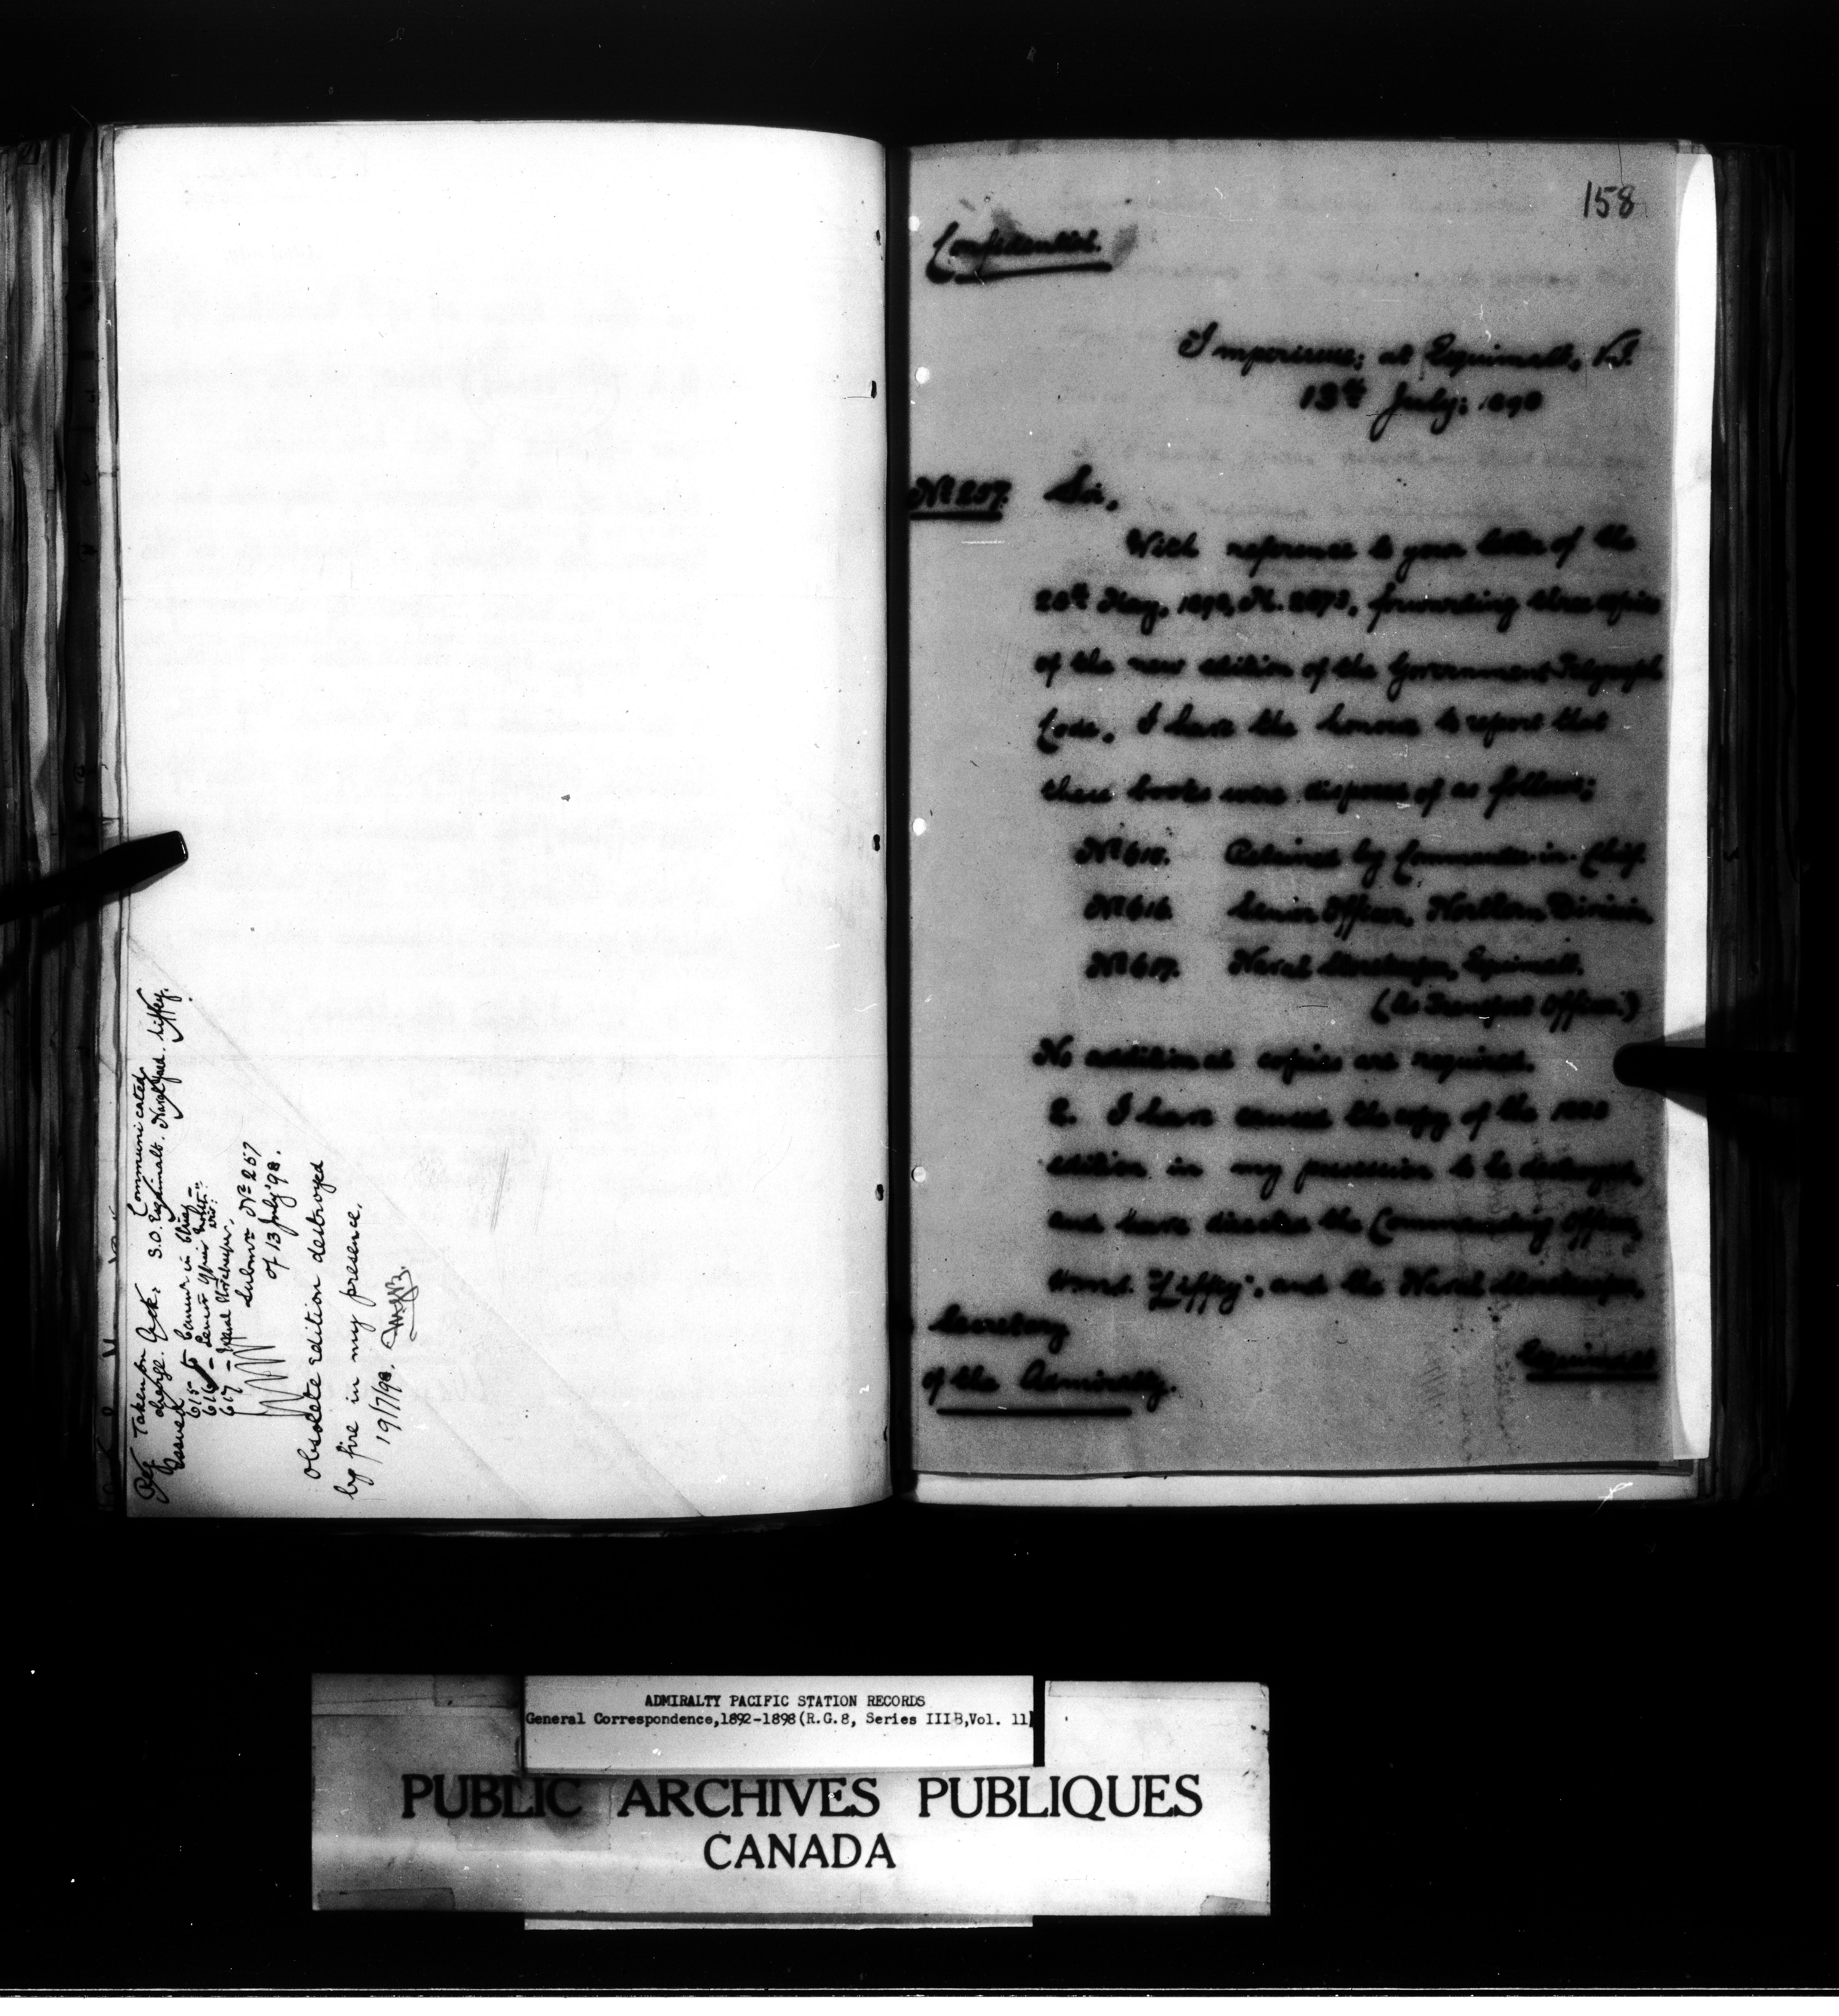 Ref Taken on charge. Ack. Communicated
S.O. Esquimalt. Naval Yard. Liffey.
Issued
615 to Comm'r in Chief
616 - Senior Officer North'n Div:
617 - Naval Storekeeper.
Subm'n Nº 257
of 13 July '98.
Obsolete edition destroyed
by fire in my presence.
19/7/98.
158
Confidential.
Imperieuse, at Esquimalt, V.I.
13th July: 1898
Nº 257. Sir,
With reference to your letter of the
28th May, 1898, M. 2873, forwarding three copies
of the new edition of the Government Telegraph
Code, I have the honour to report that
these books were disposed of as follows;
Nº 615. Retained by Commander-in-Chief.
Nº 616. Senior Officer, Northern Division
Nº 617. Naval Storekeeper, Esquimalt.
(As Transport Officer.)
No additional copies are required.
2. I have caused the copy of the 1888
edition in my possession to be destroyed,
and have directed the Commanding Officer,
H.M.S. "Liffey", and the Naval Storekeeper,
Esquimalt
Secretary
of the Admiralty.
ADMIRALTY PACIFIC STATION RECORDS
General Correspondence,1892-1898(R.G.8, Series IIIB,Vol. 11)
PUBLIC ARCHIVES PUBLIQUES
CANADA